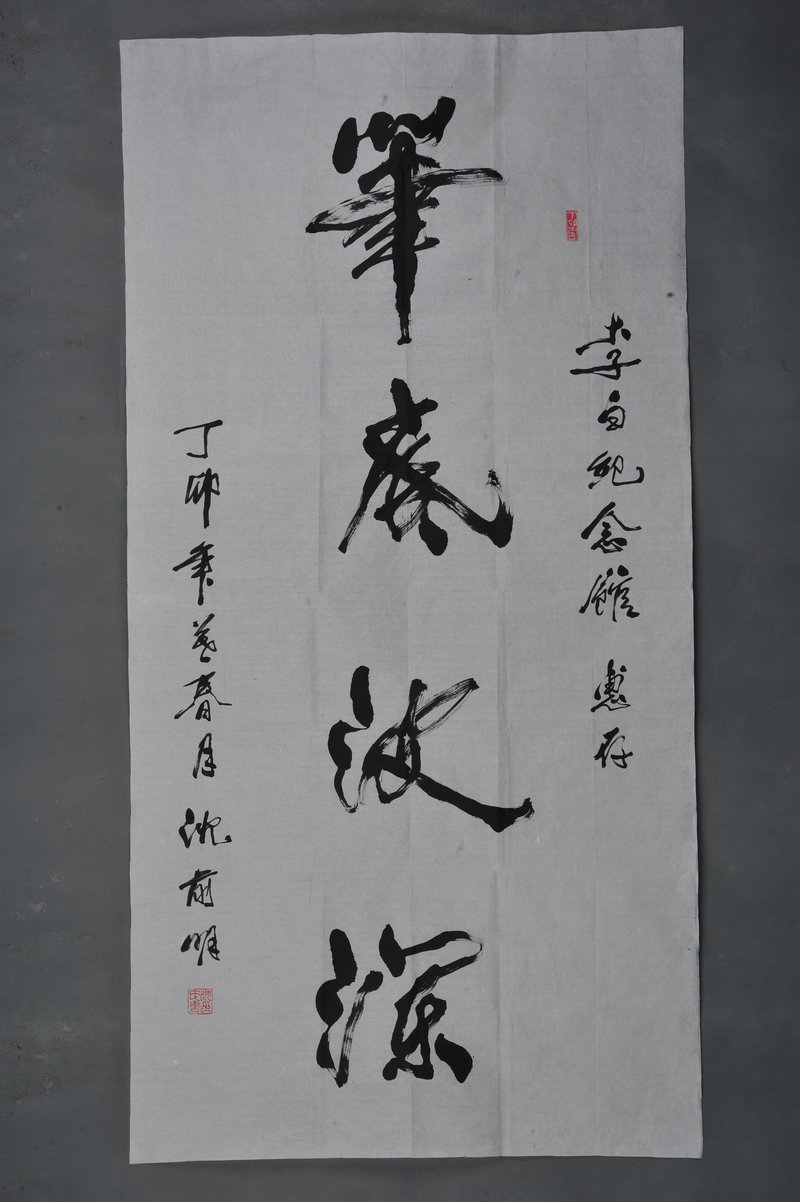 李白纪念館 惠存
筆底波深
丁卯年暮春月 沈前明